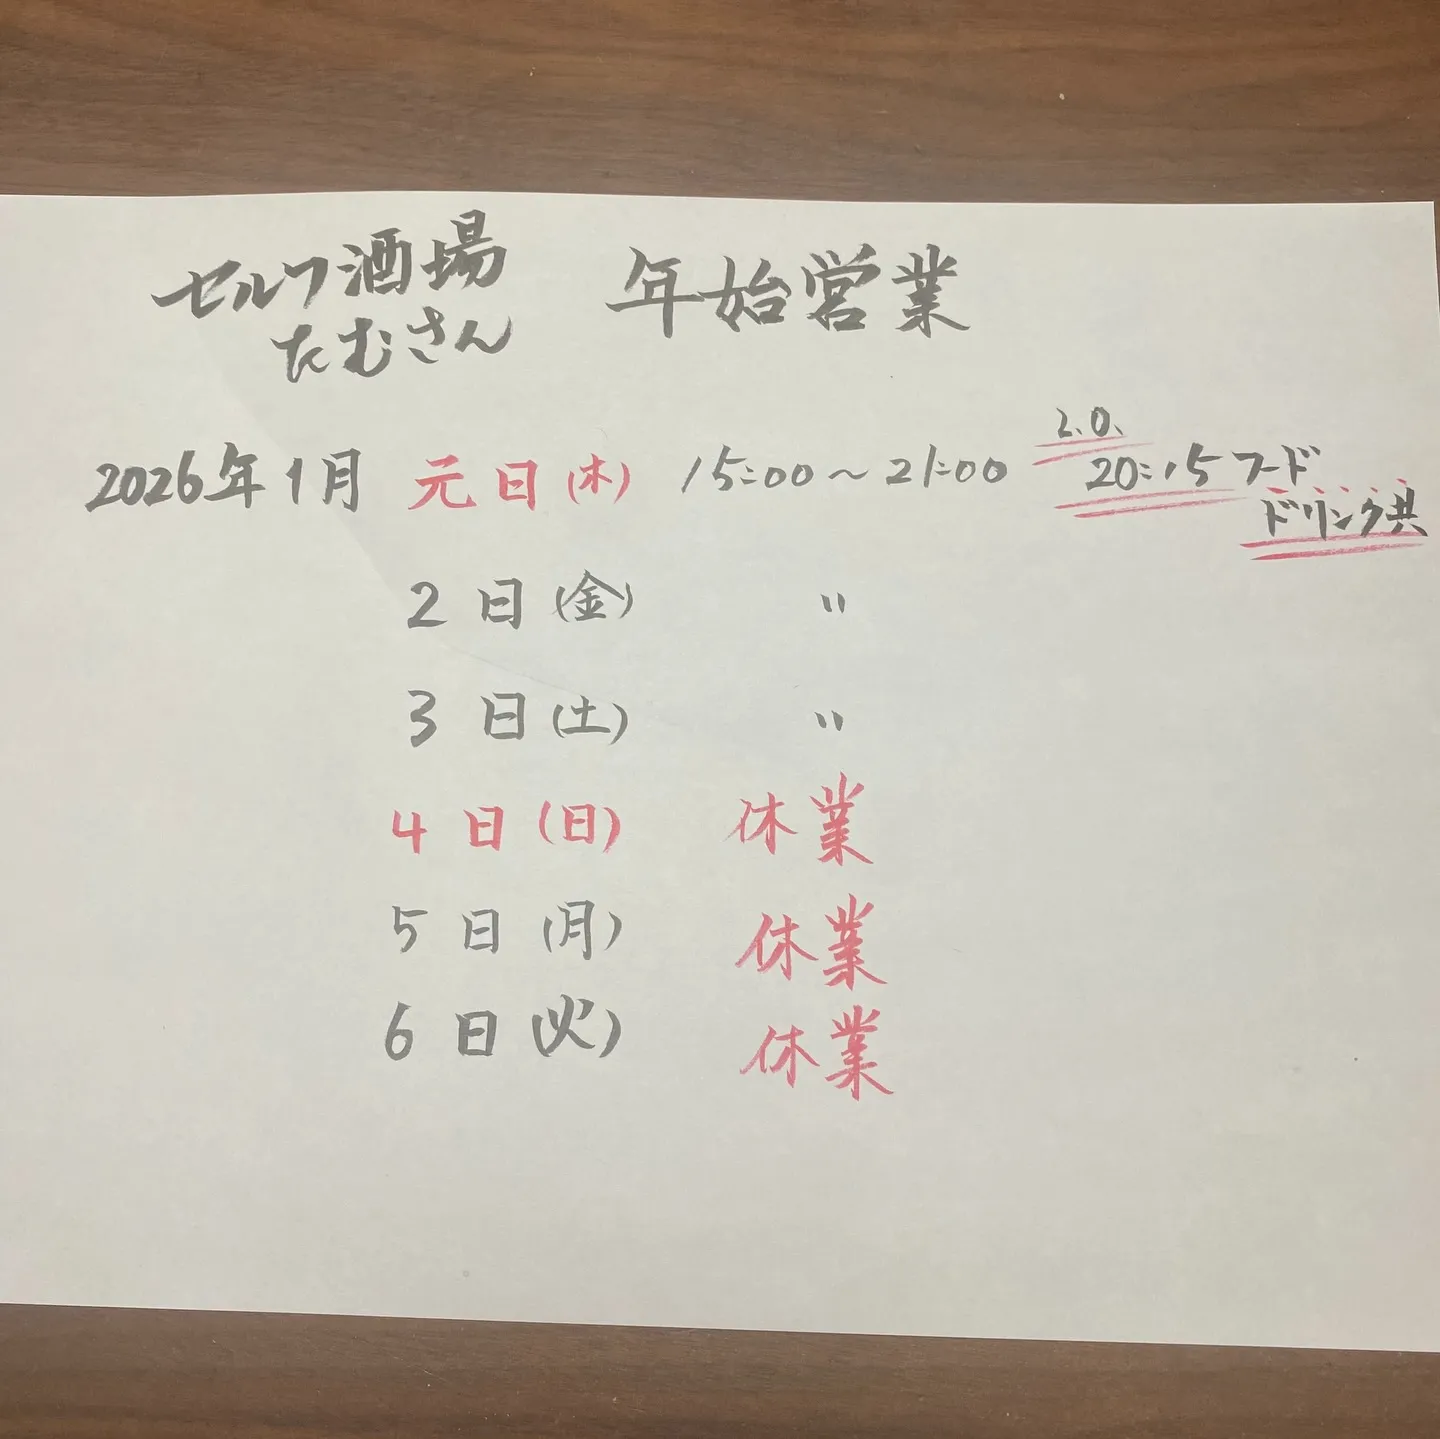 セルフ酒場
たむさん
年始営業
2026年1月 元日(木) 15:00〜21:00 L.O. 20:15 フード
ドリンク共
2日(金) 〃
3日(土) 〃
4日(日) 休業
5日(月) 休業
6日(火) 休業